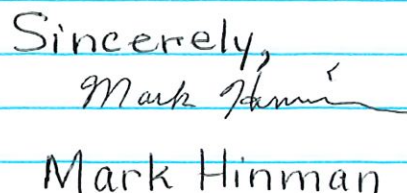 Sincerely,
Mark Hinman
Mark Hinman